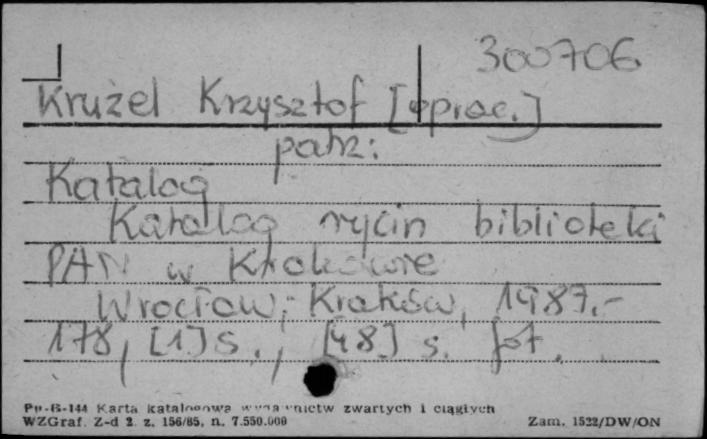 300706
Krużel Krzysztof [oprac.]
patrz:
Katalog
Katalog rycin biblioteki
PAN w Krakowie
Wrocław; Kraków, 1987.-
178, [1] s., [48] s. fot.
Pu-B-144 Karta katalogowa wydawnictw zwartych i ciągłych
WZGraf. Z-d 2. z. 156/85, n. 7.550.000 Zam. 1522/DW/ON